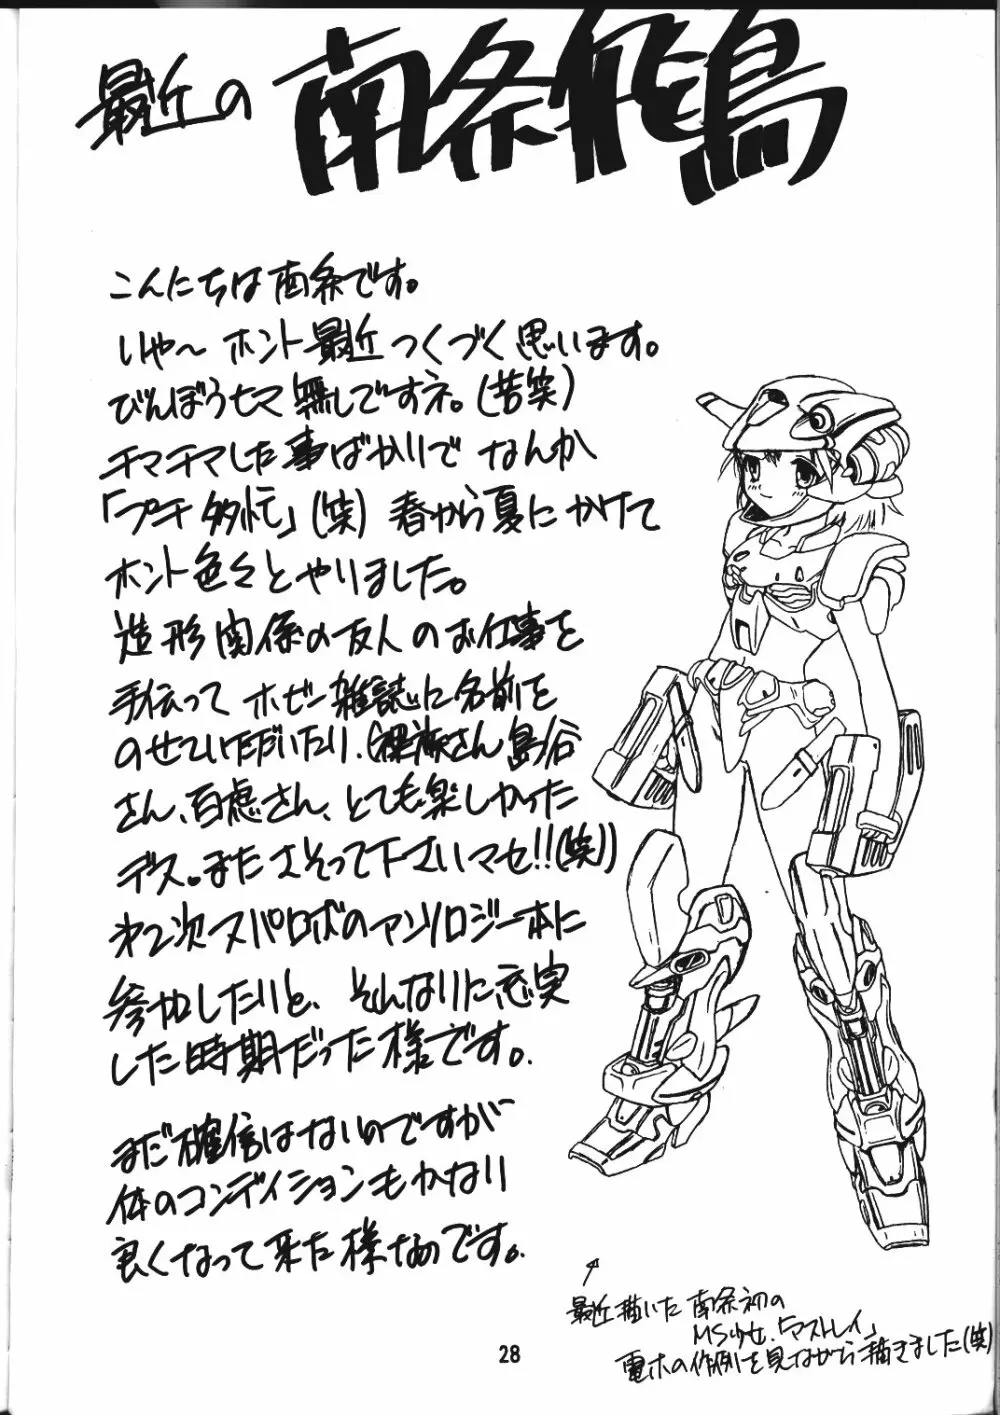 最近の 南条飛鳥
こんにちは南条です。
いや〜 ホント最近つくづく思います。
びんぼうヒマ無しですネ。(苦笑)
チマチマした事ばかりで なんか
「プチ多忙」(笑) 春から夏にかけて
ホント色々とやりました。
造形関係の友人のお仕事を
手伝って ホビー雑誌に名前を
のせていただいたり、 さん 島谷
さん、百虎さん、とても楽しかった
デス。またさそって下さいマセ!!(笑))
才2次スパロボのアンソロジー本に
参加したりと、 そんなりに充実
した時期だった様です。
まだ確信はないのですが
体のコンディションもかなり
良くなって来た様なのです。
最近描いた 南条初の
MS少女、「アストレイ」
電ホの作例を見ながら描きました(笑)
28